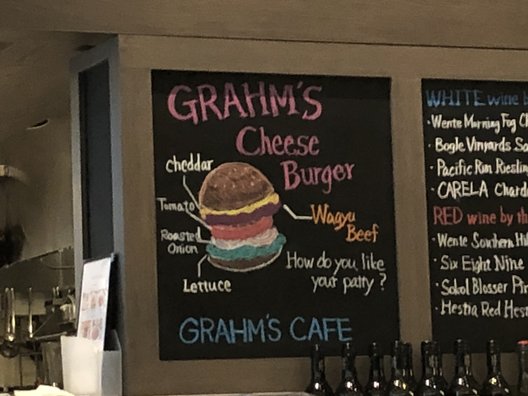 GRAHM'S
Cheese
Burger
cheddar
Tomato
Roasted
Onion
Lettuce
Wagyu
Beef
How do you like
your patty?
GRAHM'S CAFE
WHITE wine
Wente Morning Fog
Bogle Vinyards
Pacific Rim Riesling
CARELA
RED wine by
Wente Southern
Six Eight Nine
Sokol Blosser
Hestia Red